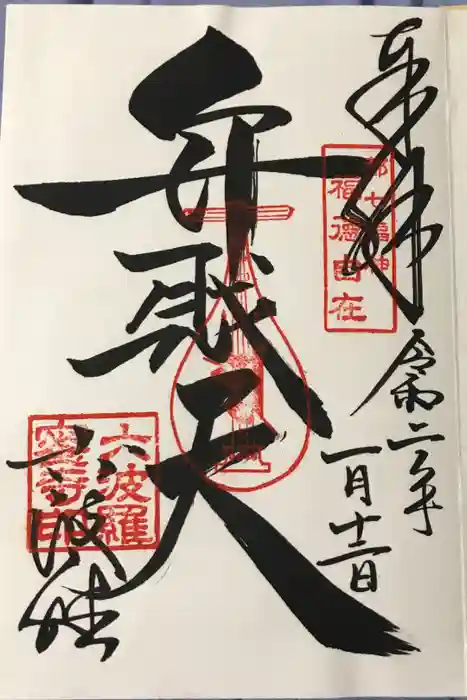 奉拝
都七福神
福徳自在
令和二年
一月十二日
弁財天
六波羅
蜜寺印
六波